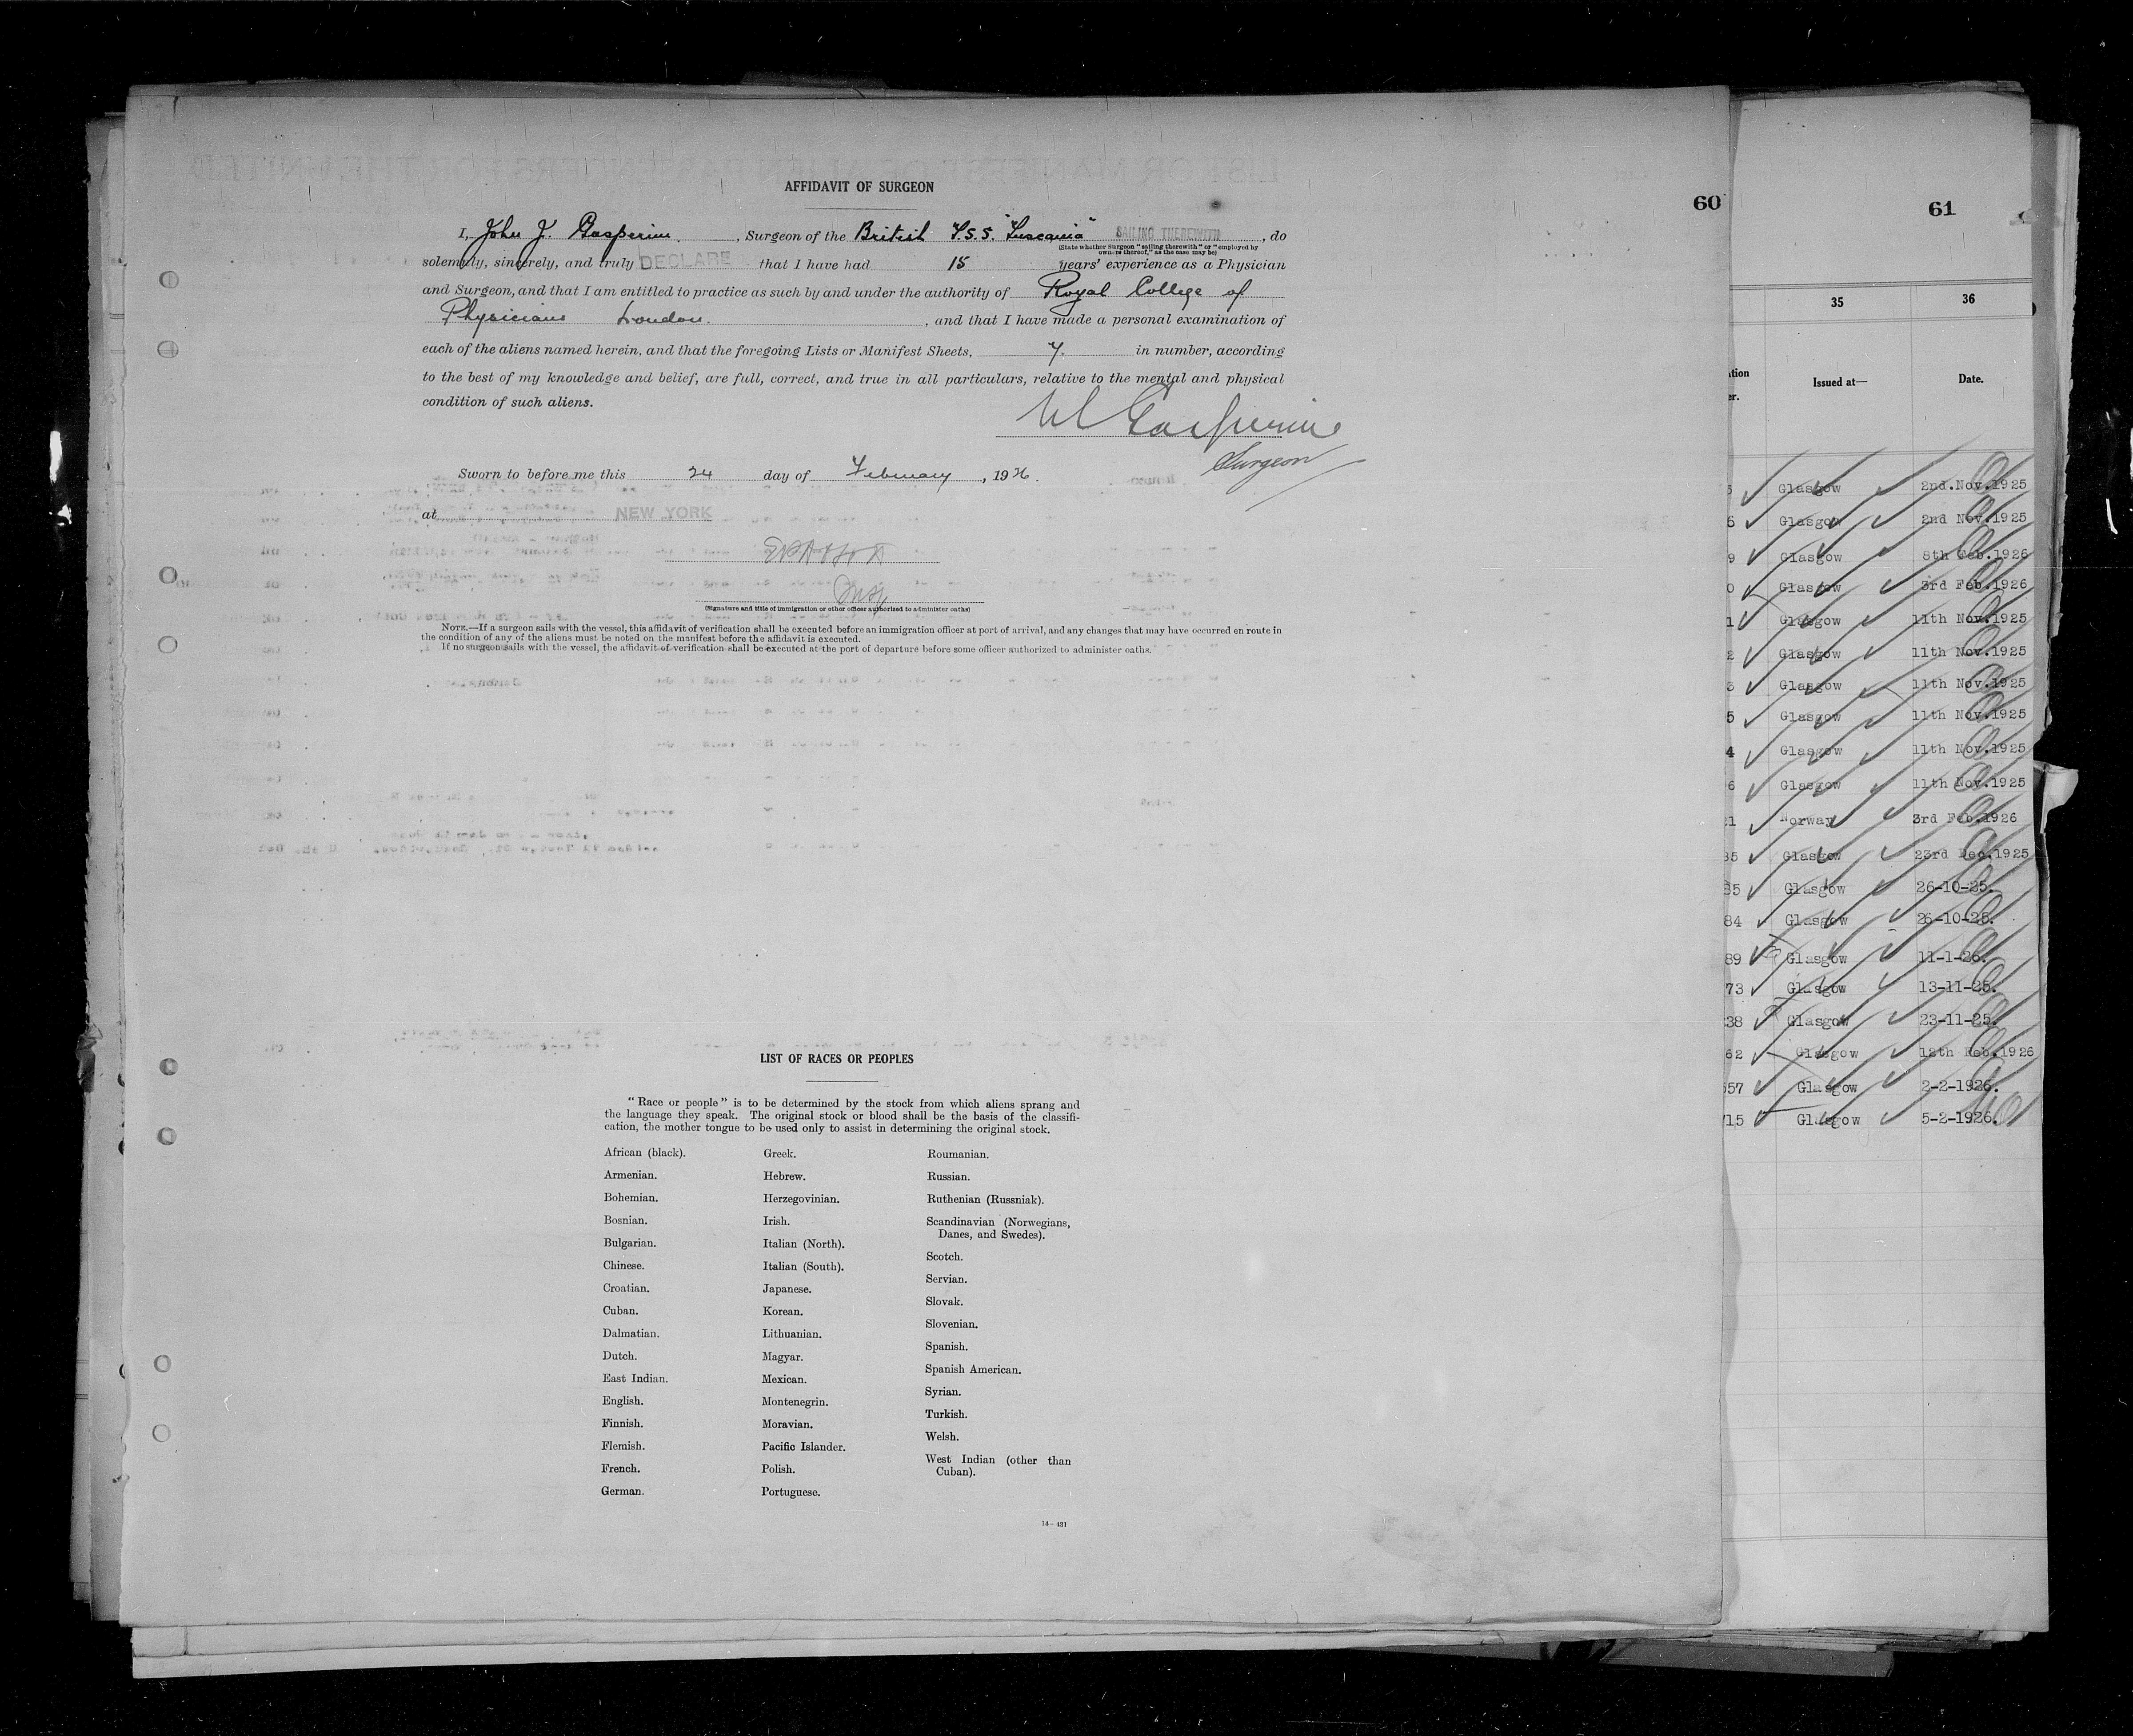 60
AFFIDAVIT OF SURGEON
I, John J. Gasperine, Surgeon of the British T.S.S. "Tuscania" SAILING THEREWITH, do
(State whether Surgeon "sailing therewith" or "employed by
owners thereof," as the case may be)
solemnly, sincerely, and truly DECLARE that I have had 15 years' experience as a Physician
and Surgeon, and that I am entitled to practice as such by and under the authority of Royal College of
Physicians London., and that I have made a personal examination of
each of the aliens named herein, and that the foregoing Lists or Manifest Sheets, 7. in number, according
to the best of my knowledge and belief, are full, correct, and true in all particulars, relative to the mental and physical
condition of such aliens.
Gasperine
Surgeon
Sworn to before me this 24 day of February, 1926.
at NEW YORK
Insp
(Signature and title of immigration or other officer authorized to administer oaths)
NOTE.—If a surgeon sails with the vessel, this affidavit of verification shall be executed before an immigration officer at port of arrival, and any changes that may have occurred en route in
the condition of any of the aliens must be noted on the manifest before the affidavit is executed.
If no surgeon sails with the vessel, the affidavit of verification shall be executed at the port of departure before some officer authorized to administer oaths.
LIST OF RACES OR PEOPLES
"Race or people" is to be determined by the stock from which aliens sprang and
the language they speak. The original stock or blood shall be the basis of the classifi-
cation, the mother tongue to be used only to assist in determining the original stock.
African (black).
Armenian.
Bohemian.
Bosnian.
Bulgarian.
Chinese.
Croatian.
Cuban.
Dalmatian.
Dutch.
East Indian.
English.
Finnish.
Flemish.
French.
German.
Greek.
Hebrew.
Herzegovinian.
Irish.
Italian (North).
Italian (South).
Japanese.
Korean.
Lithuanian.
Magyar.
Mexican.
Montenegrin.
Moravian.
Pacific Islander.
Polish.
Portuguese.
Roumanian.
Russian.
Ruthenian (Russniak).
Scandinavian (Norwegians,
Danes, and Swedes).
Scotch.
Servian.
Slovak.
Slovenian.
Spanish.
Spanish American.
Syrian.
Turkish.
Welsh.
West Indian (other than
Cuban).
14—431
61
35 36
Issued at— Date.
Glasgow 2nd.Nov.1925
6 Glasgow 2nd Nov.1925
9 Glasgow 8th Feb.1926
0 Glasgow 3rd Feb.1926
1 Glasgow 11th Nov.1925
2 Glasgow 11th Nov.1925
3 Glasgow 11th Nov.1925
5 Glasgow 11th Nov.1925
4 Glasgow 11th Nov.1925
6 Glasgow 11th Nov.1925
21 Norway 3rd Feb.1926
35 Glasgow 23rd Dec.1925
35 Glasgow 26-10-25.
84 Glasgow 26-10-25.
89 Glasgow 11-1-26.
73 Glasgow 13-11-25.
38 Glasgow 23-11-25.
62 Glasgow 12th Feb.1926
57 Glasgow 2-2-1926.
715 Glasgow 5-2-1926.